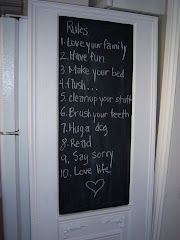 Rules
1. Love your family
2. Have fun
3. Make your bed
4. flush...
5. clean up your stuff
6. Brush your teeth
7. Hug a dog
8. Read
9. Say sorry
10. Love life!